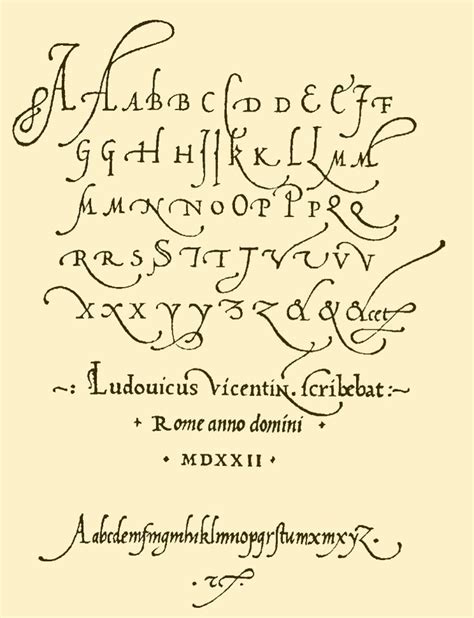 A A A B B C D D D E E F F
G G H H I J K K L L M M
M M N N O O P P P Q Q
R R S S T T J V U V V
X X X Y Y Z Z & & &cet
~: Ludouicus Vicentin. scribebat:~
+ Rome anno domini +
• MDXXII •
Aabcdemfmgmhıklmnopqrſtumxmxyz.